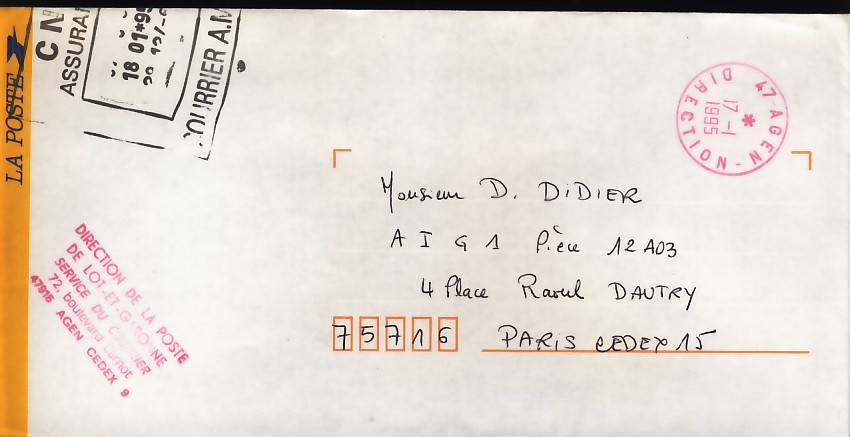 LA POSTE
C N
ASSURA
18 01*95
COURRIER A.M
47-AGEN-DIRECTION
17-1
1995
*
Monsieur D. DiDIER
A I G 1 Pièce 12 A03
4 Place Raoul DAUTRY
75716 PARIS CEDEX 15
DIRECTION DE LA POSTE
DE LOT-ET-GARONNE
SERVICE DU COURRIER
72, boulevard Carnot
47916 AGEN CEDEX 9